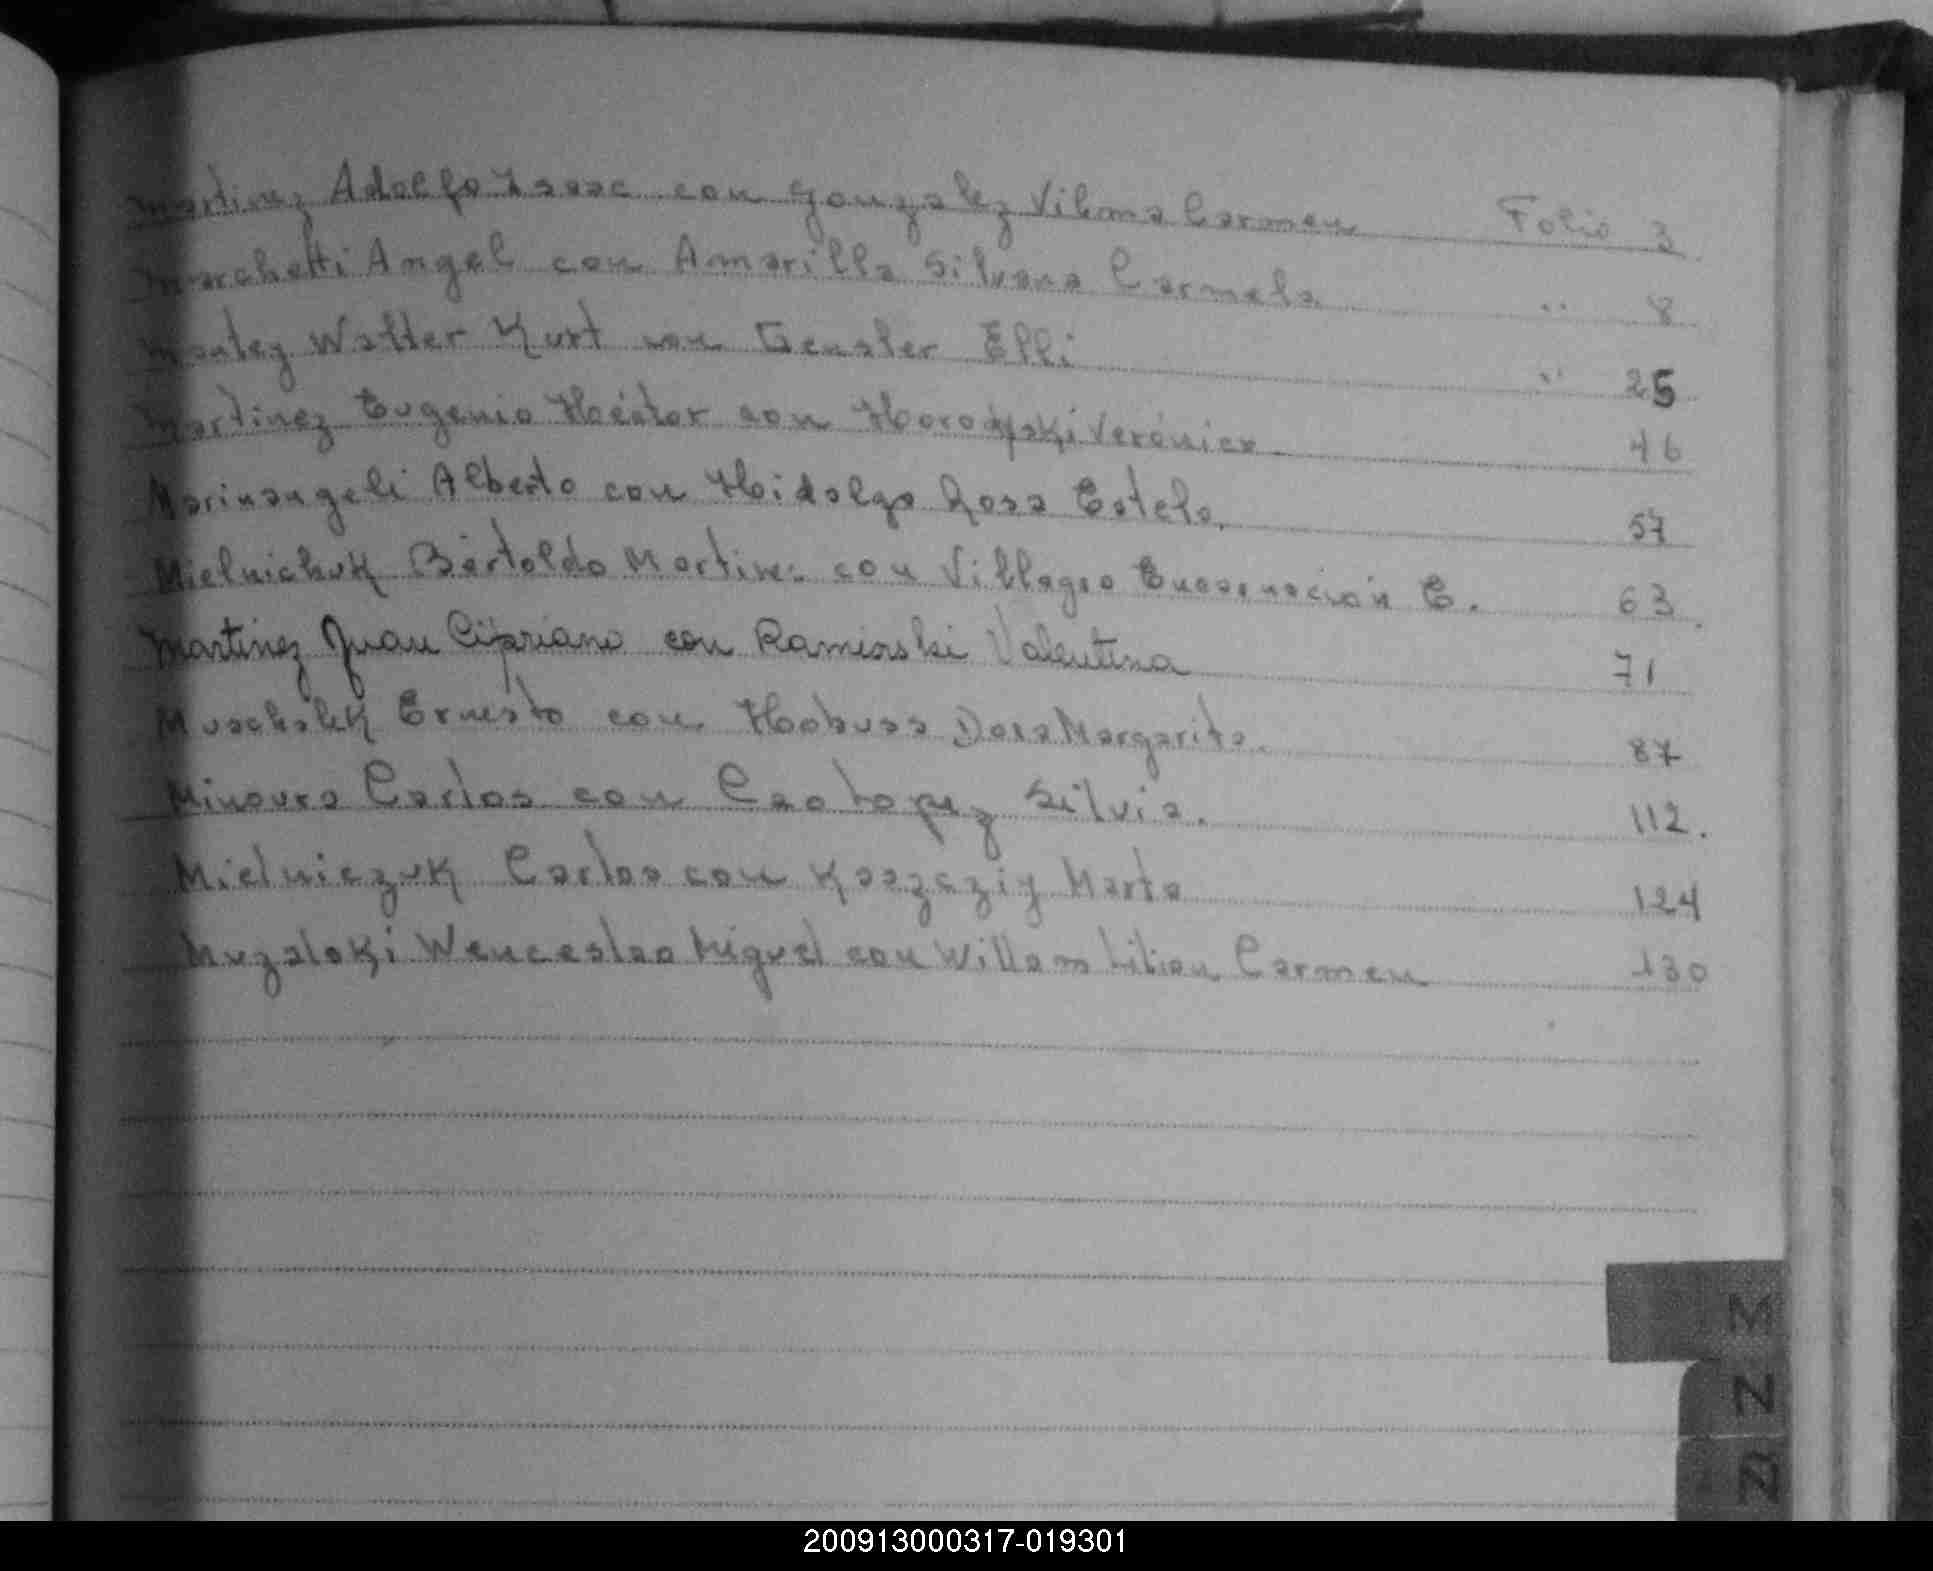 Martinez Adolfo Isaac con Gonzalez Vilma Carmen Folio 3
Marchetti Angel con Amarilla Silvana Carmela " 8
Montez Walter Kurt con Gensler Elli " 25
Martinez Eugenio Héctor con Horodyski Verónica 46
Marinangeli Alberto con Hidalgo Rosa Estela. 57
Mielnichuk Bertoldo Martin con Villagra Encarnación E. 63
Martinez Juan Cipriano con Ramirski Valentina 71
Muschalek Ernesto con Hobuss Dora Margarita. 87
Minoura Carlos con Cao Lopez Silvia. 112.
Mielniczuk Carlos con Marta 124
Muzalski Wenceslao Miguel con Willams Lilian Carmen 130
M
N
Ñ
200913000317-019301